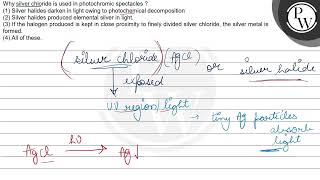 Why silver chloride is used in photochromic spectacles ?
(1) Silver halides darken in light owing to photochemical decomposition
(2) Silver halides produced elemental silver in light.
(3) If the halogen produced is kept in close proximity to finely divided silver chloride, the silver metal is
formed.
(4) All of these.
(silver chloride) (AgCl)
or silver halide
exposed
UV region/light
→ tiny Ag particles
absorb
light
AgCl hν→ Ag↓